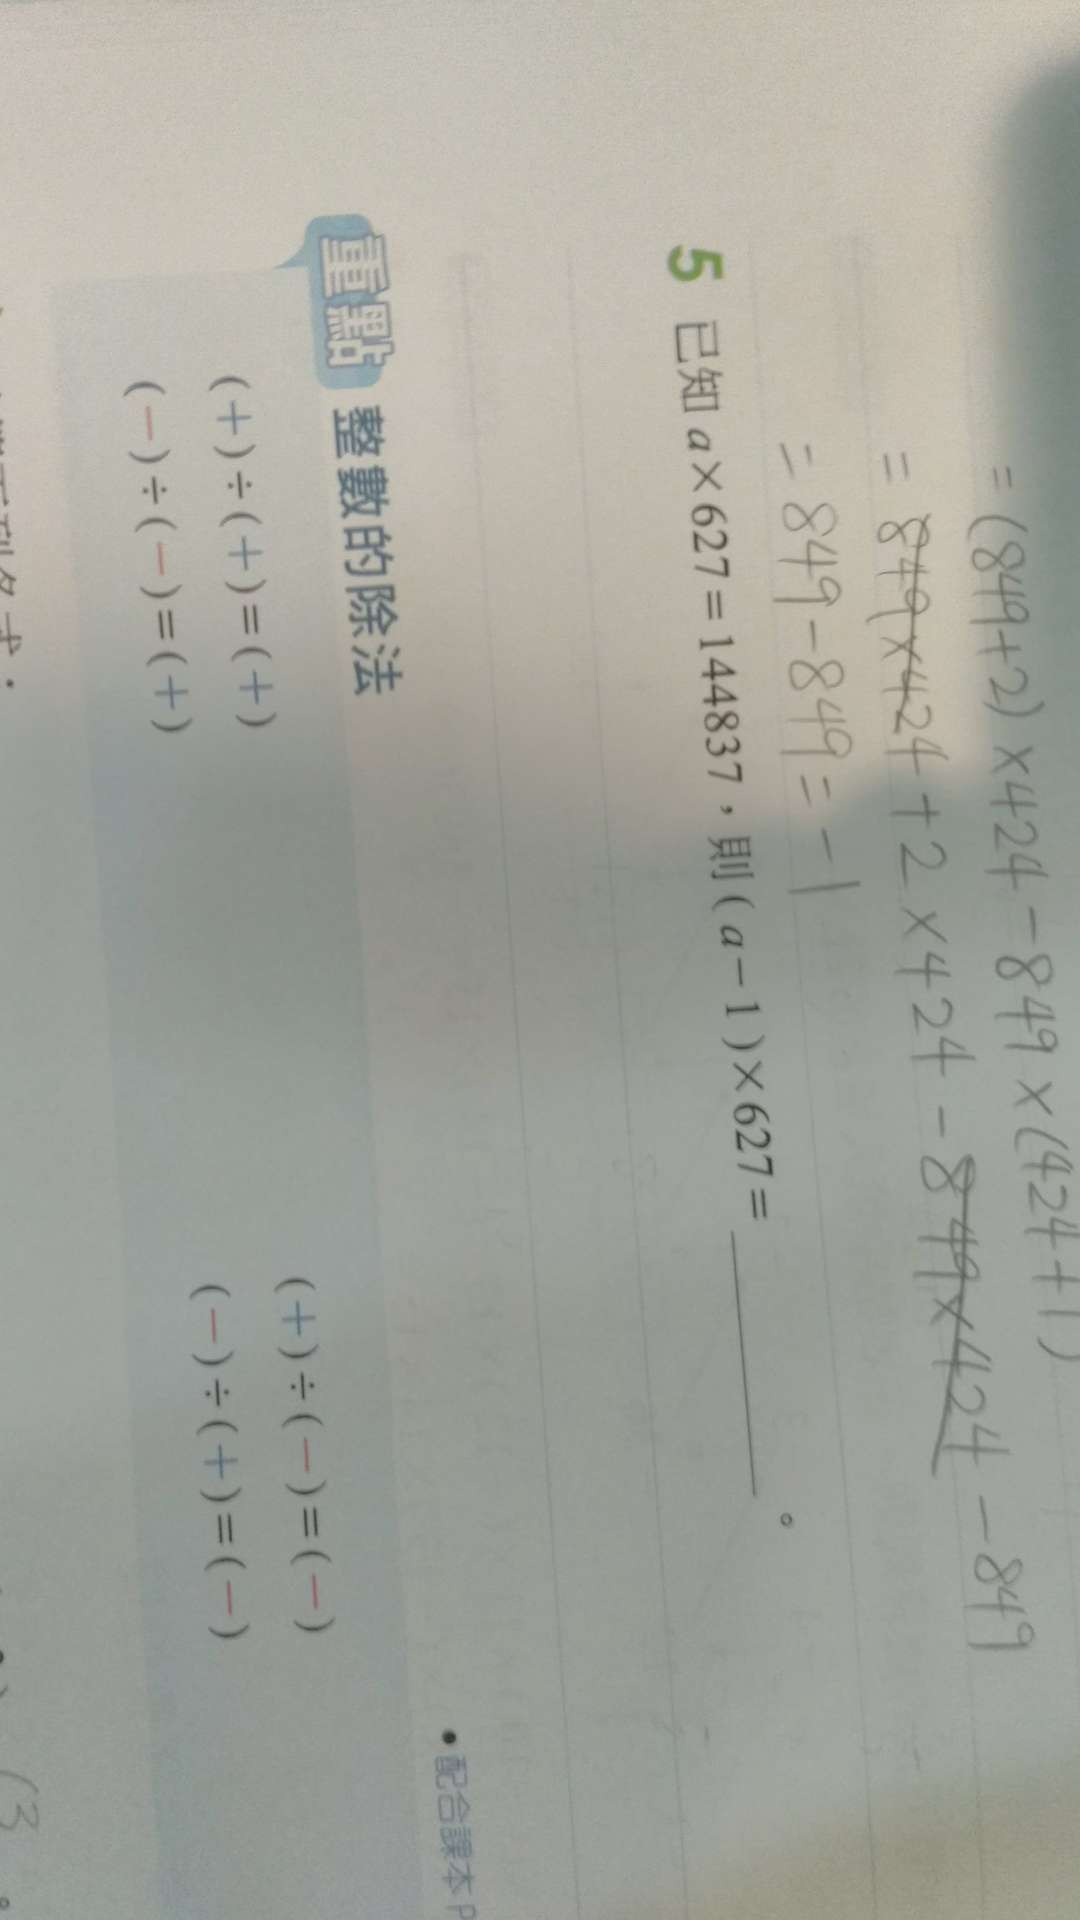 =(849+2)×424-849×(424+1)
=849×424+2×424-849×424-849
=849-849=-1
5 已知a×627=144837,則(a-1)×627=______。
•配合課本P
重點 整數的除法
(+)÷(+)=(+) (+)÷(-)=(-)
(-)÷(-)=(+) (-)÷(+)=(-)